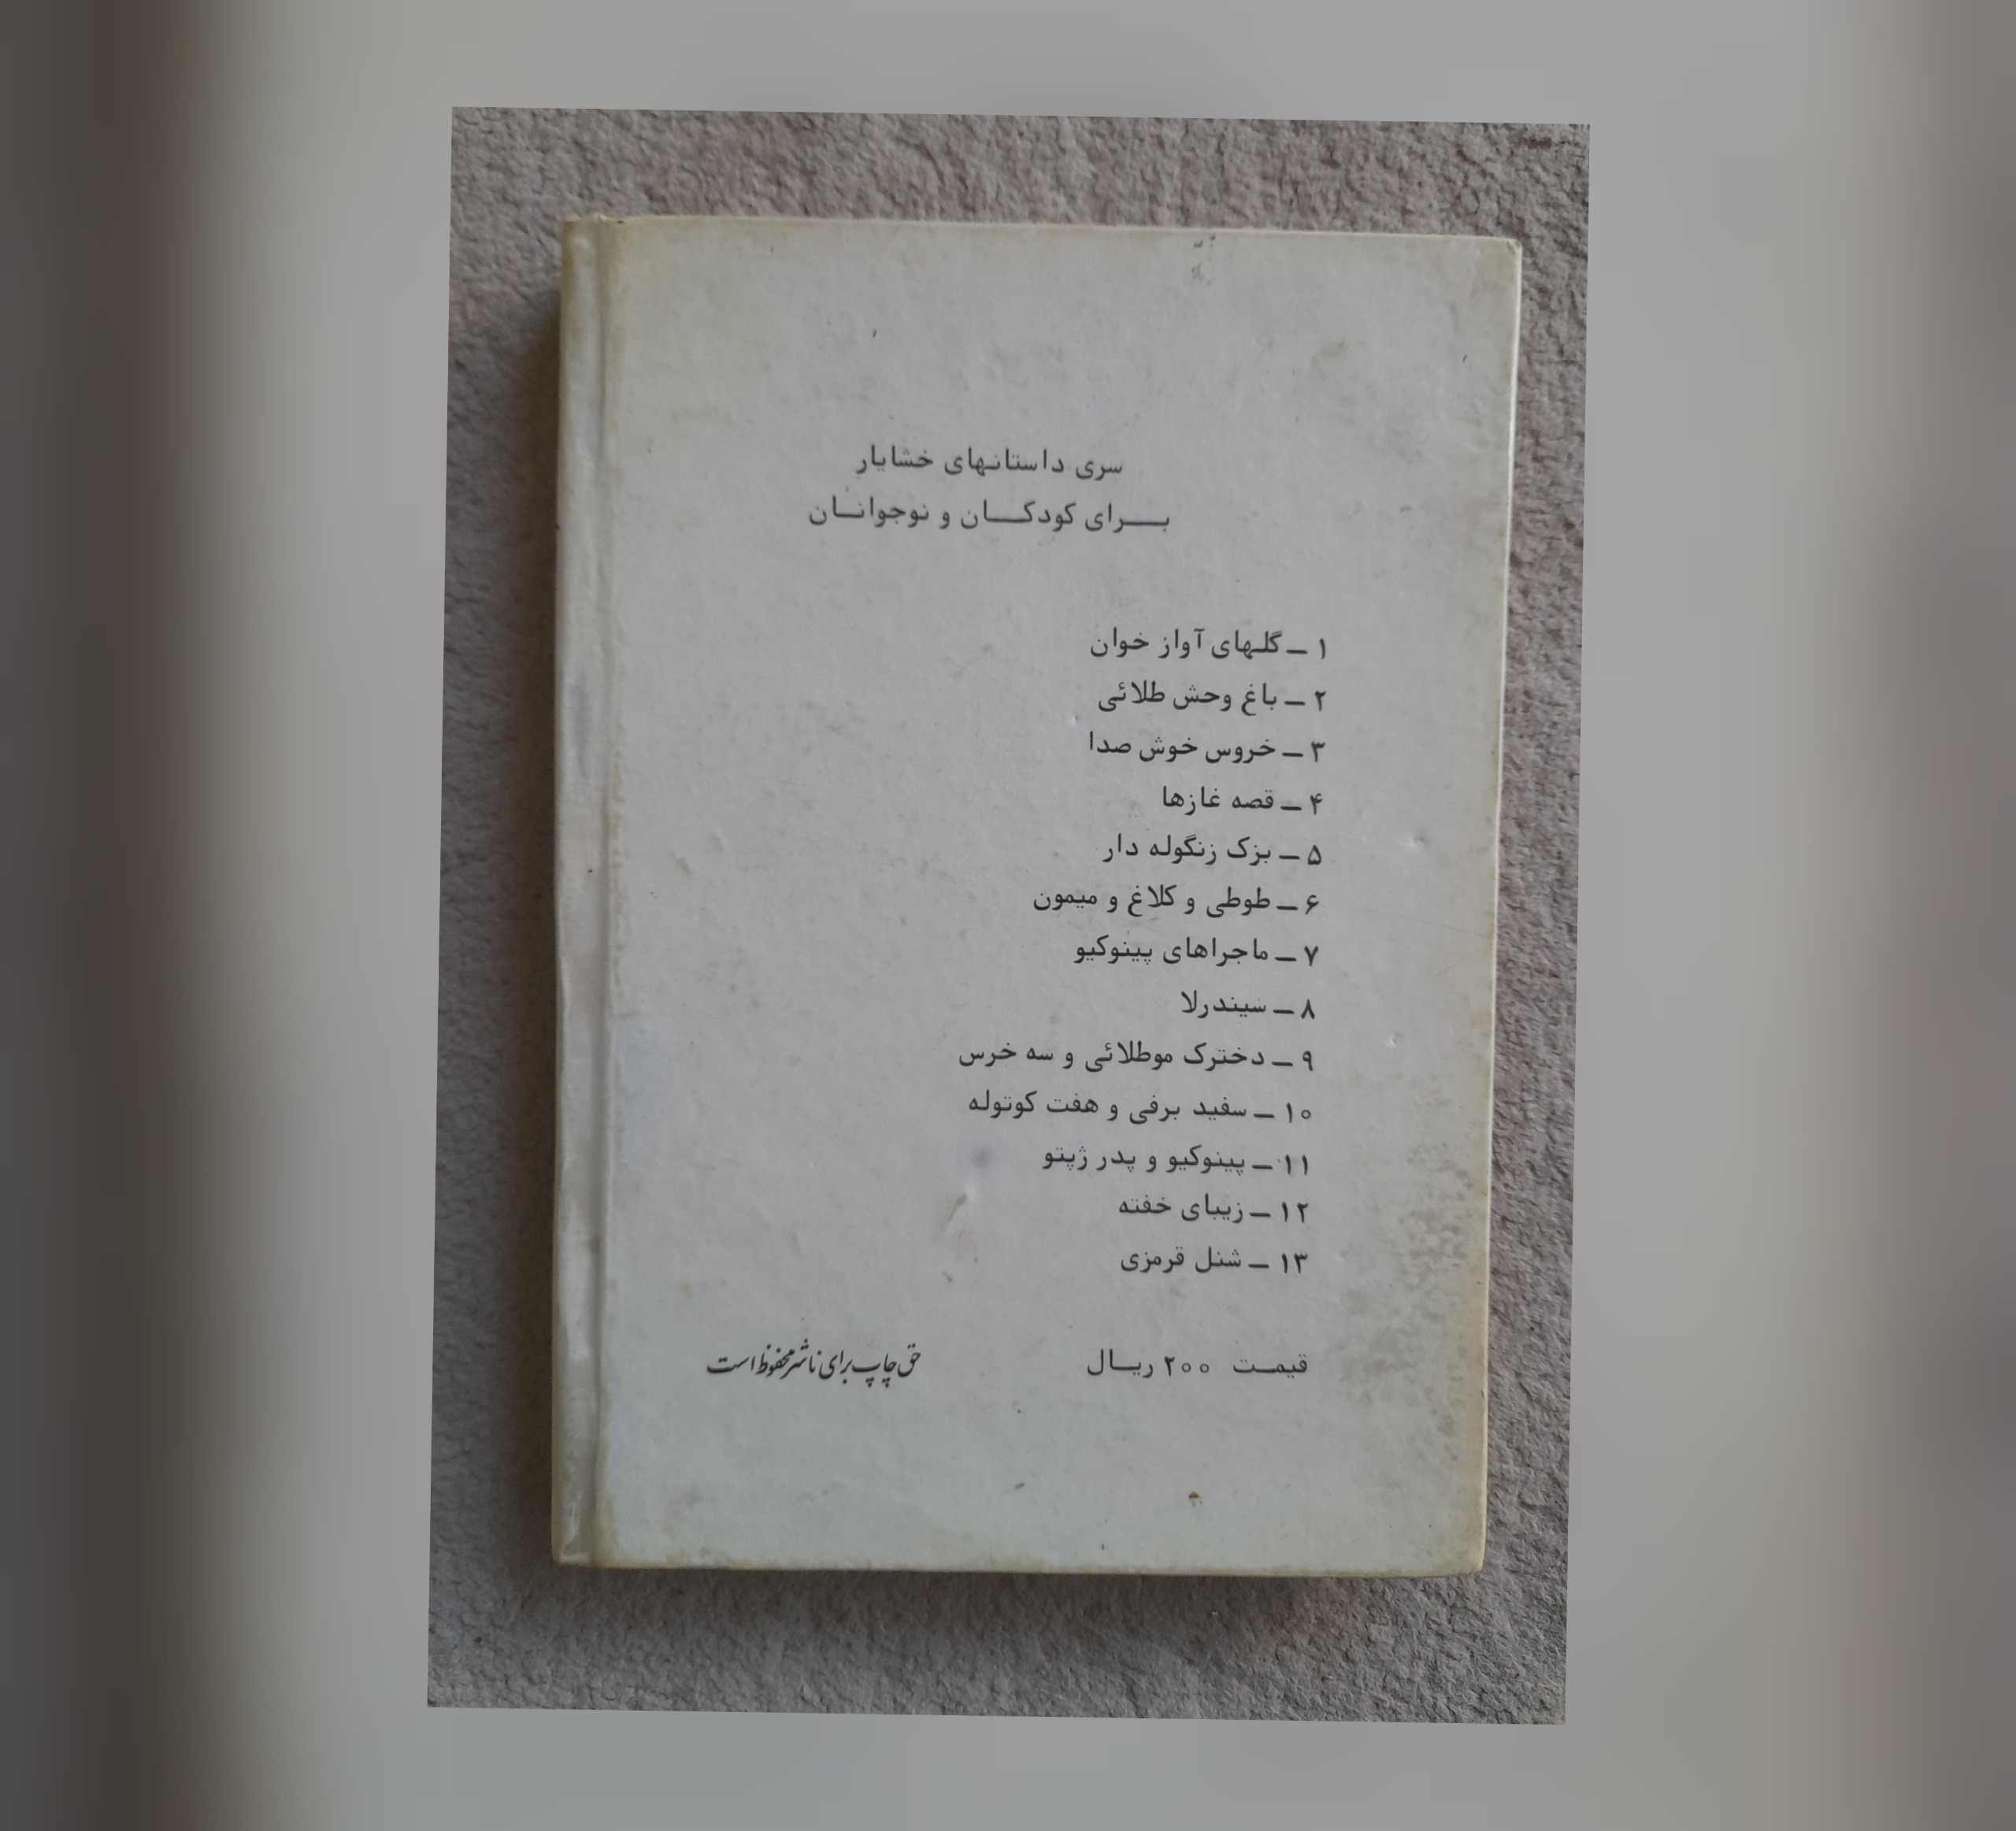 سری داستانهای خشایار
برای کودکان و نوجوانان
۱ـ گلهای آواز خوان
۲ـ باغ وحش طلائی
۳ـ خروس خوش صدا
۴ـ قصه غازها
۵ـ بزک زنگوله دار
۶ـ طوطی و کلاغ و میمون
۷ـ ماجراهای پینوکیو
۸ـ سیندرلا
۹ـ دخترک موطلائی و سه خرس
۱۰ـ سفید برفی و هفت کوتوله
۱۱ـ پینوکیو و پدر ژپتو
۱۲ـ زیبای خفته
۱۳ـ شنل قرمزی
قیمت ۲۰۰ ریال حق چاپ برای ناشر محفوظ است